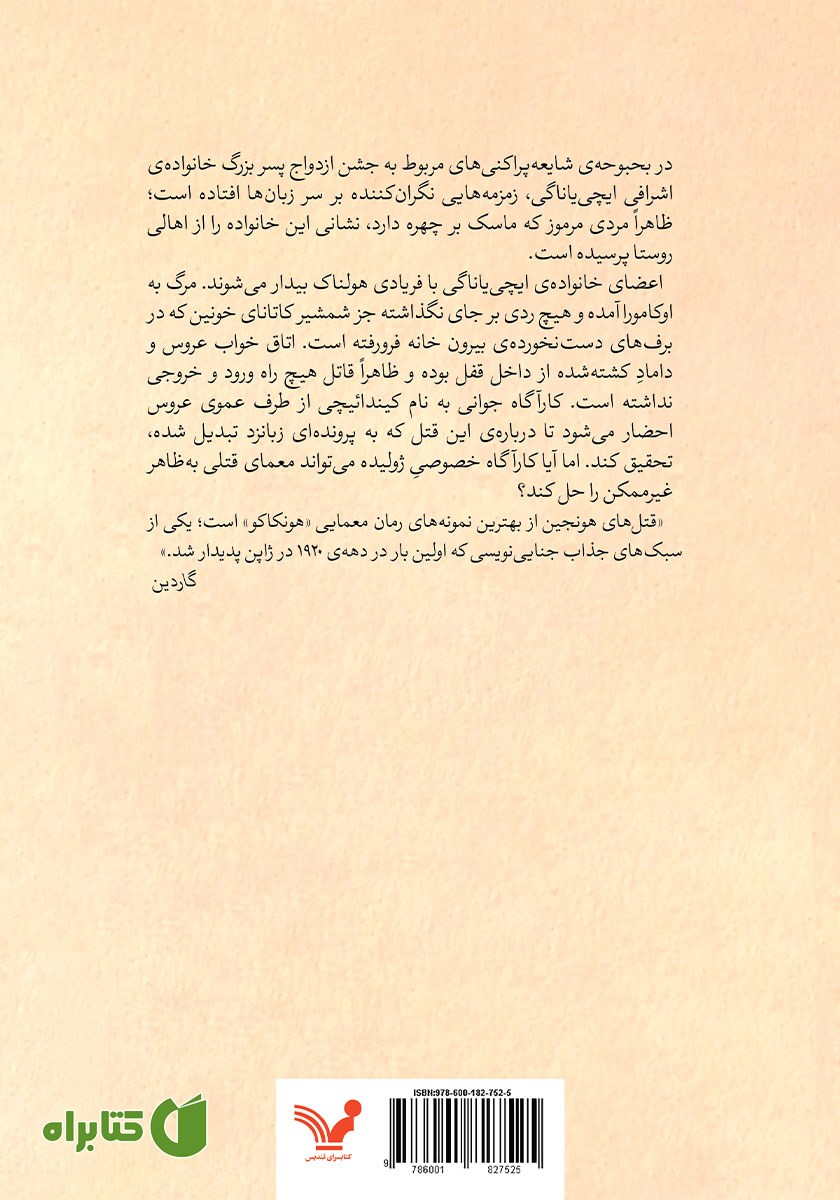 در بحبوحه‌ی شایعه‌پراکنی‌های مربوط به جشن ازدواج پسر بزرگ خانواده‌ی
اشرافی ایچی‌یاناگی، زمزمه‌هایی نگران‌کننده بر سر زبان‌ها افتاده است؛
ظاهراً مردی مرموز که ماسک بر چهره دارد، نشانی این خانواده را از اهالی
روستا پرسیده است.
اعضای خانواده‌ی ایچی‌یاناگی با فریادی هولناک بیدار می‌شوند. مرگ به
اوکامورا آمده و هیچ ردی بر جای نگذاشته جز شمشیر کاتانای خونین که در
برف‌های دست‌نخورده‌ی بیرون خانه فرورفته است. اتاق خواب عروس و
دامادِ کشته‌شده از داخل قفل بوده و ظاهراً قاتل هیچ راه ورود و خروجی
نداشته است. کارآگاه جوانی به نام کیندائیچی از طرف عموی عروس
احضار می‌شود تا درباره‌ی این قتل که به پرونده‌ای زبانزد تبدیل شده،
تحقیق کند. اما آیا کارآگاه خصوصیِ ژولیده می‌تواند معمای قتلی به‌ظاهر
غیرممکن را حل کند؟
«قتل‌های هونجین از بهترین نمونه‌های رمان معمایی «هونکاکو» است؛ یکی از
سبک‌های جذاب جنایی‌نویسی که اولین بار در دهه‌ی ۱۹۲۰ در ژاپن پدیدار شد.»
گاردین
ISBN:978-600-182-752-5
9 786001 827525
کتابسرای تندیس
کتابراه